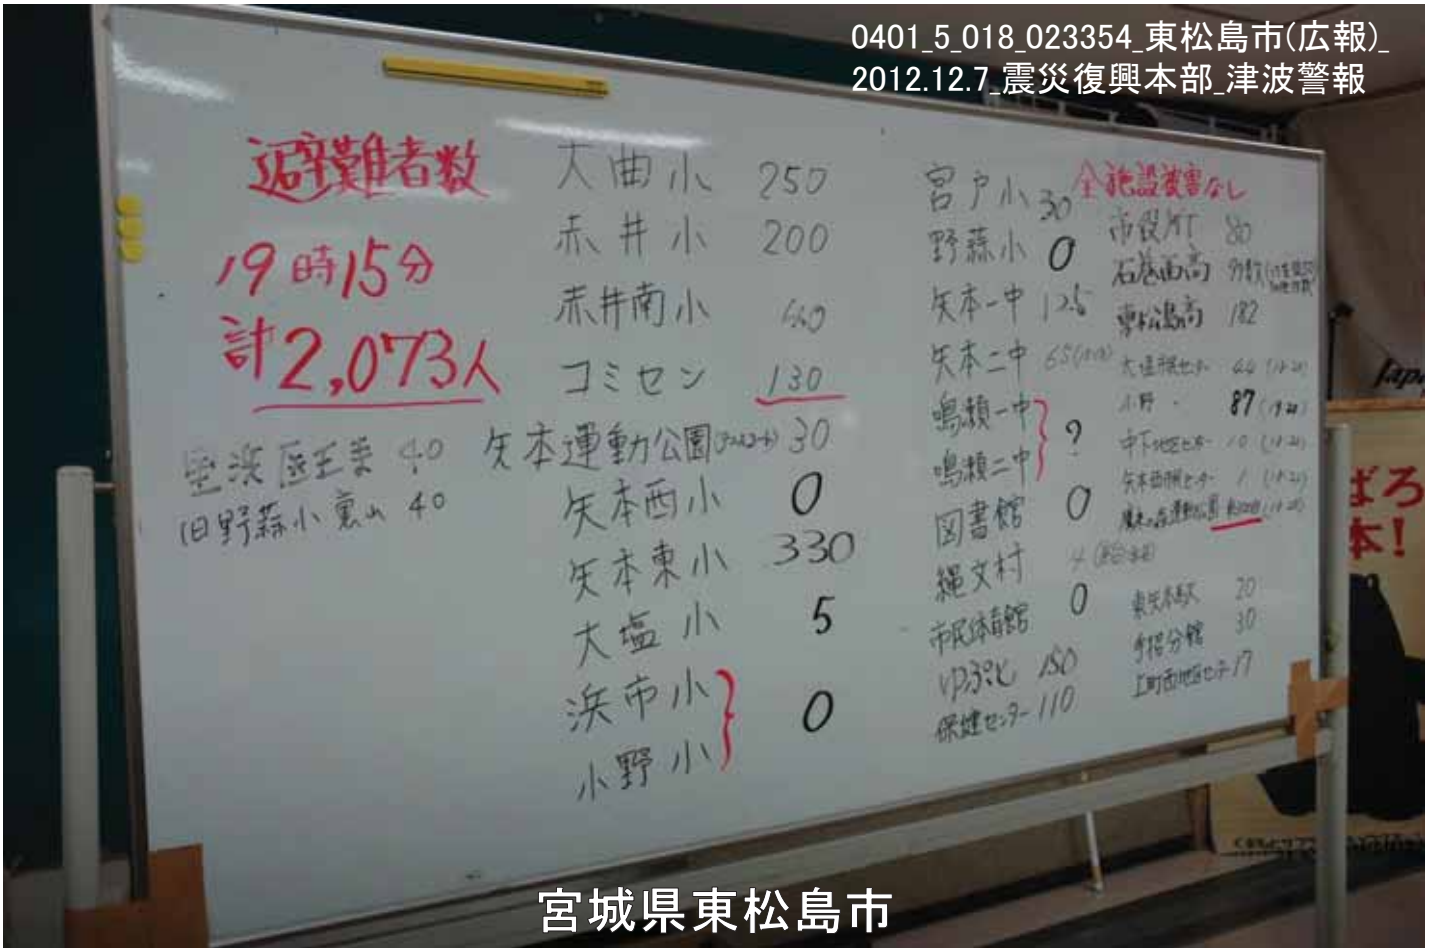 0401_5_018_023354_東松島市(広報)_
2012.12.7_震災復興本部_津波警報
避難者数
19時15分
計2,073人
里浜区 40
旧野蒜小裏山 40
大曲小 250
赤井小 200
赤井南小
コミセン 130
矢本運動公園 30
矢本西小 0
矢本東小 330
大塩小 5
浜市小
小野小 } 0
宮戸小 30
野蒜小 0
矢本一中 125
矢本二中 65
鳴瀬一中
鳴瀬二中 } ?
図書館 0
縄文村 4
市民体育館 0
ゆぷと 150
保健センター 110
全施設被害なし
市役所 80
石巻西高 多数
東松島高 182
大塩市民センター 44
小野 〃 87
中下地区センター 10
矢本西市民センター 1
東矢本駅 20
手招分館 30
上町西地区センター 17
Japa
ばろ
本!
宮城県東松島市